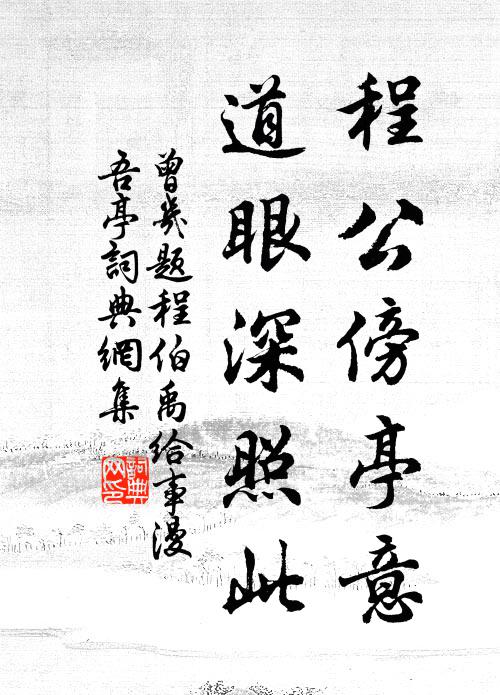 程公傍亭意
道眼深照此
曾幾題程伯禹給事漫
吾亭詞典網集
詞典網印